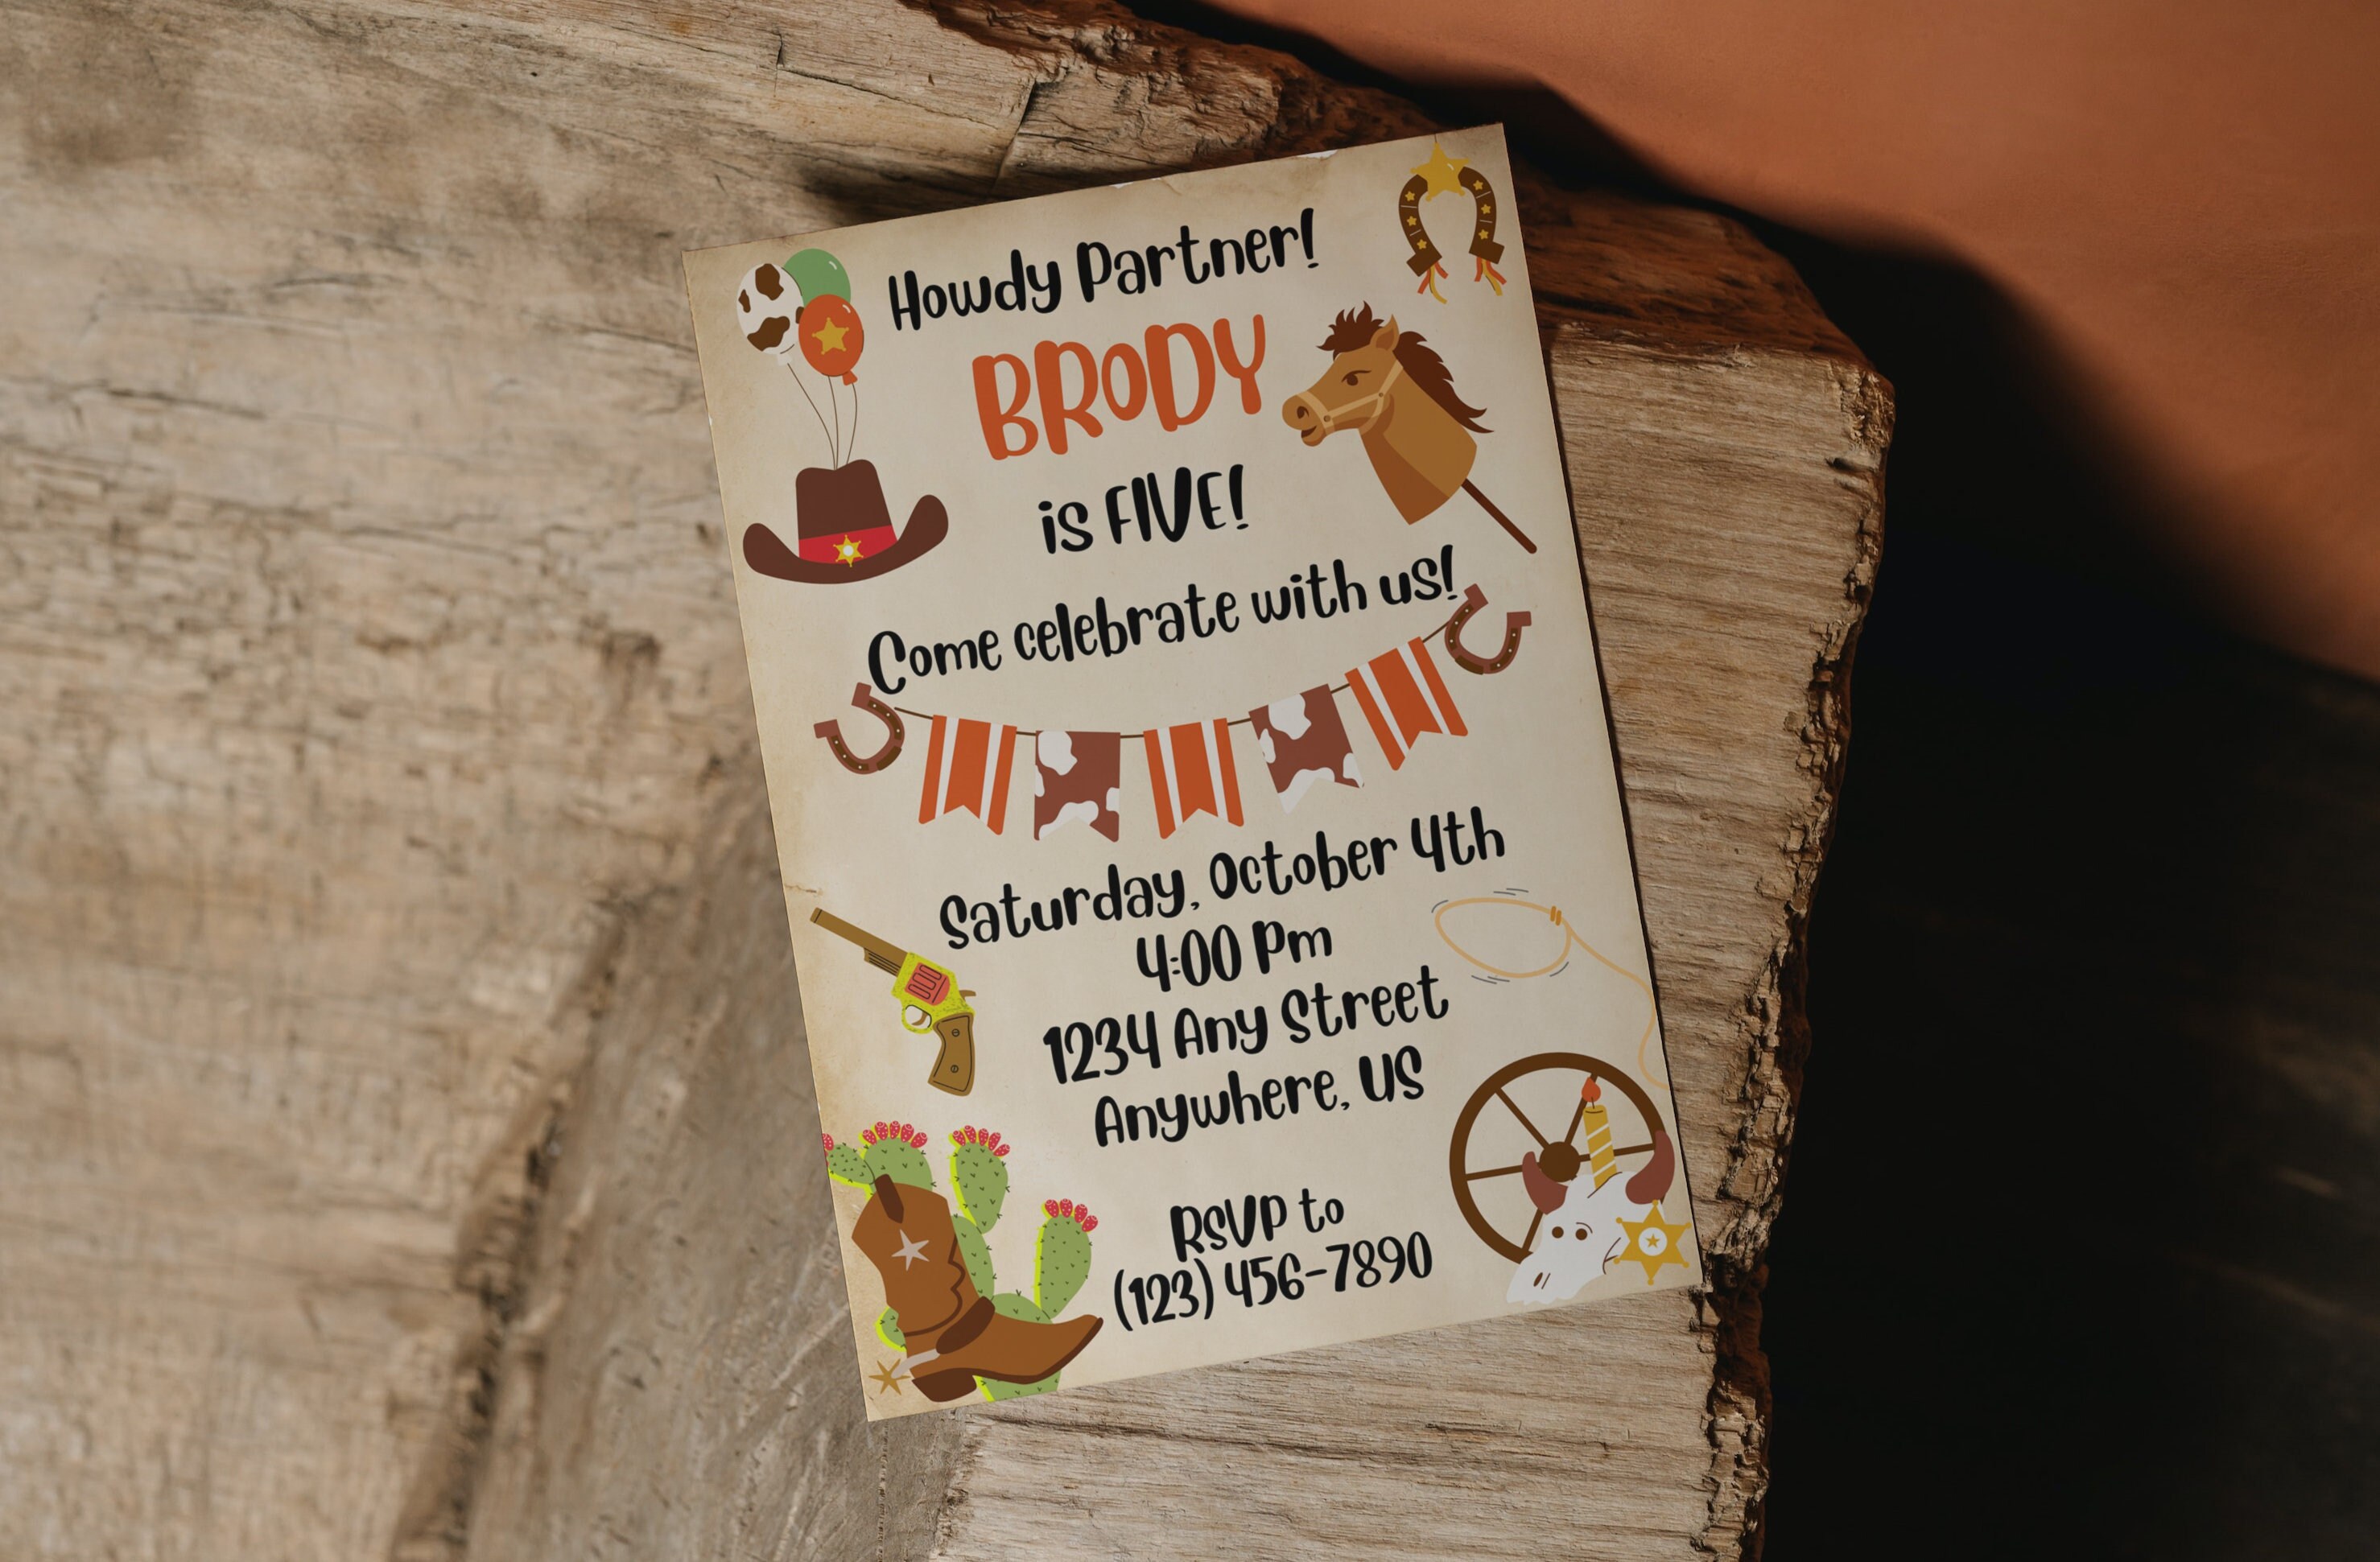 Howdy Partner!
BRODY
is FIVE!
Come celebrate with us!
Saturday, October 4th
4:00 Pm
1234 Any Street
Anywhere, US
RSVP to
(123) 456-7890